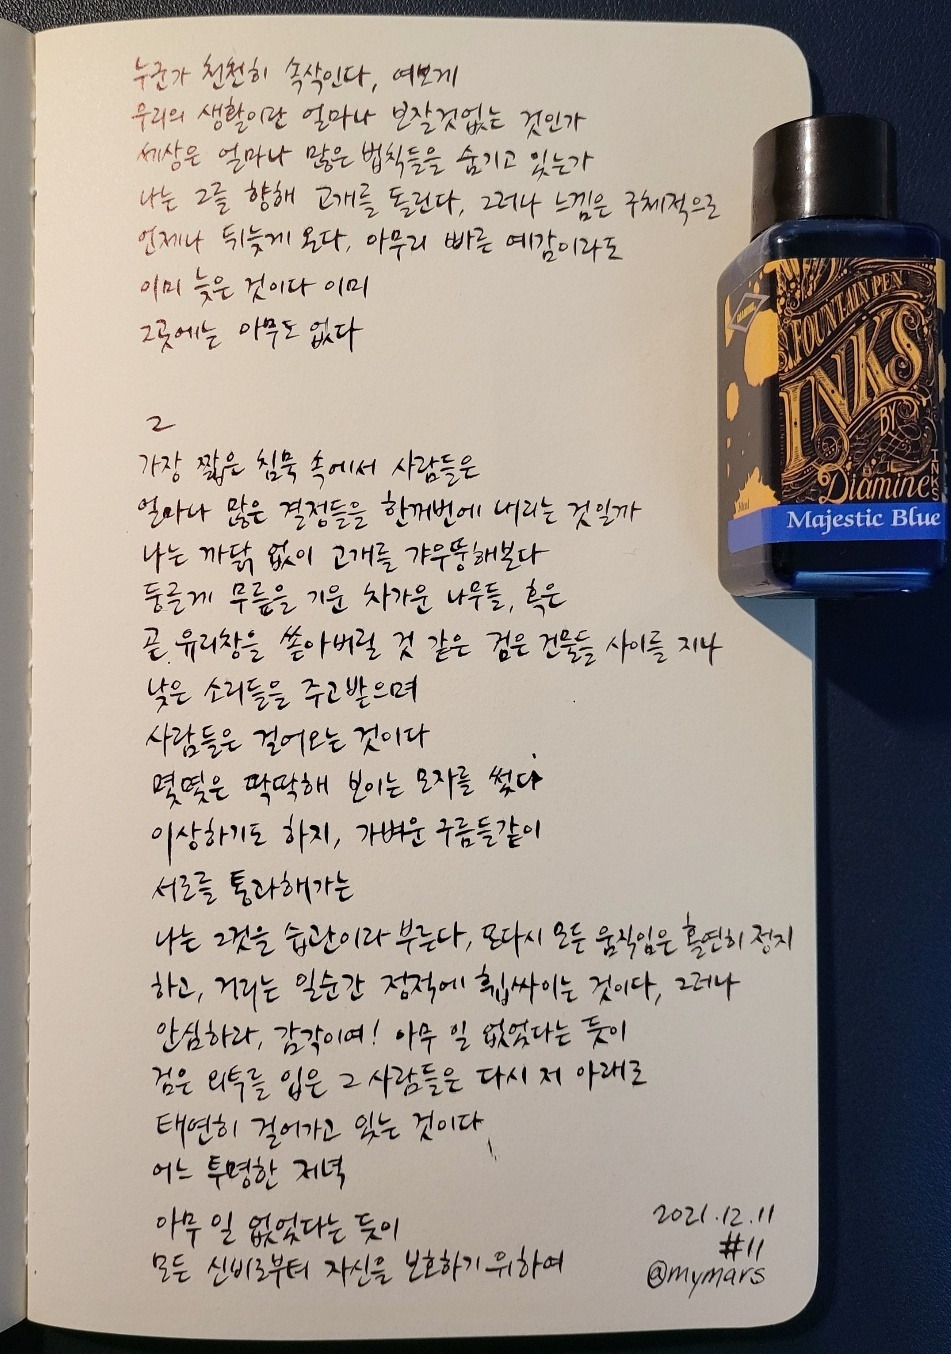 누군가 천천히 속삭인다, 여보게
우리의 생활이란 얼마나 보잘것없는 것인가
세상은 얼마나 많은 법칙들을 숨기고 있는가
나는 그를 향해 고개를 돌린다, 그러나 느낌은 구체적으로
언제나 뒤늦게 온다, 아무리 빠른 예감이라도
이미 늦은 것이다 이미
그곳에는 아무도 없다
2
가장 짧은 침묵 속에서 사람들은
얼마나 많은 결정들을 한꺼번에 내리는 것일까
나는 까닭 없이 고개를 갸우뚱해본다
둥글게 무릎을 기운 차가운 나무들, 혹은
곧 유리창을 쏟아버릴 것 같은 검은 건물들 사이를 지나
낮은 소리들을 주고받으며
사람들은 걸어오는 것이다
몇몇은 딱딱해 보이는 모자를 썼다
이상하기도 하지, 가벼운 구름들같이
서로를 통과해가는
나는 그것을 습관이라 부른다, 또다시 모든 움직임은 홀연히 정지
하고, 거리는 일순간 정적에 휩싸이는 것이다, 그러나
안심하라, 감각이여! 아무 일 없었다는 듯이
검은 외투를 입은 그 사람들은 다시 저 아래로
태연히 걸어가고 있는 것이다
어느 투명한 저녁
아무 일 없었다는 듯이
모든 신비로부터 자신을 보호하기 위하여
2021.12.11
#11
@mymars
FOUNTAIN PEN
INKS
BY
Diamine
INKS
Majestic Blue